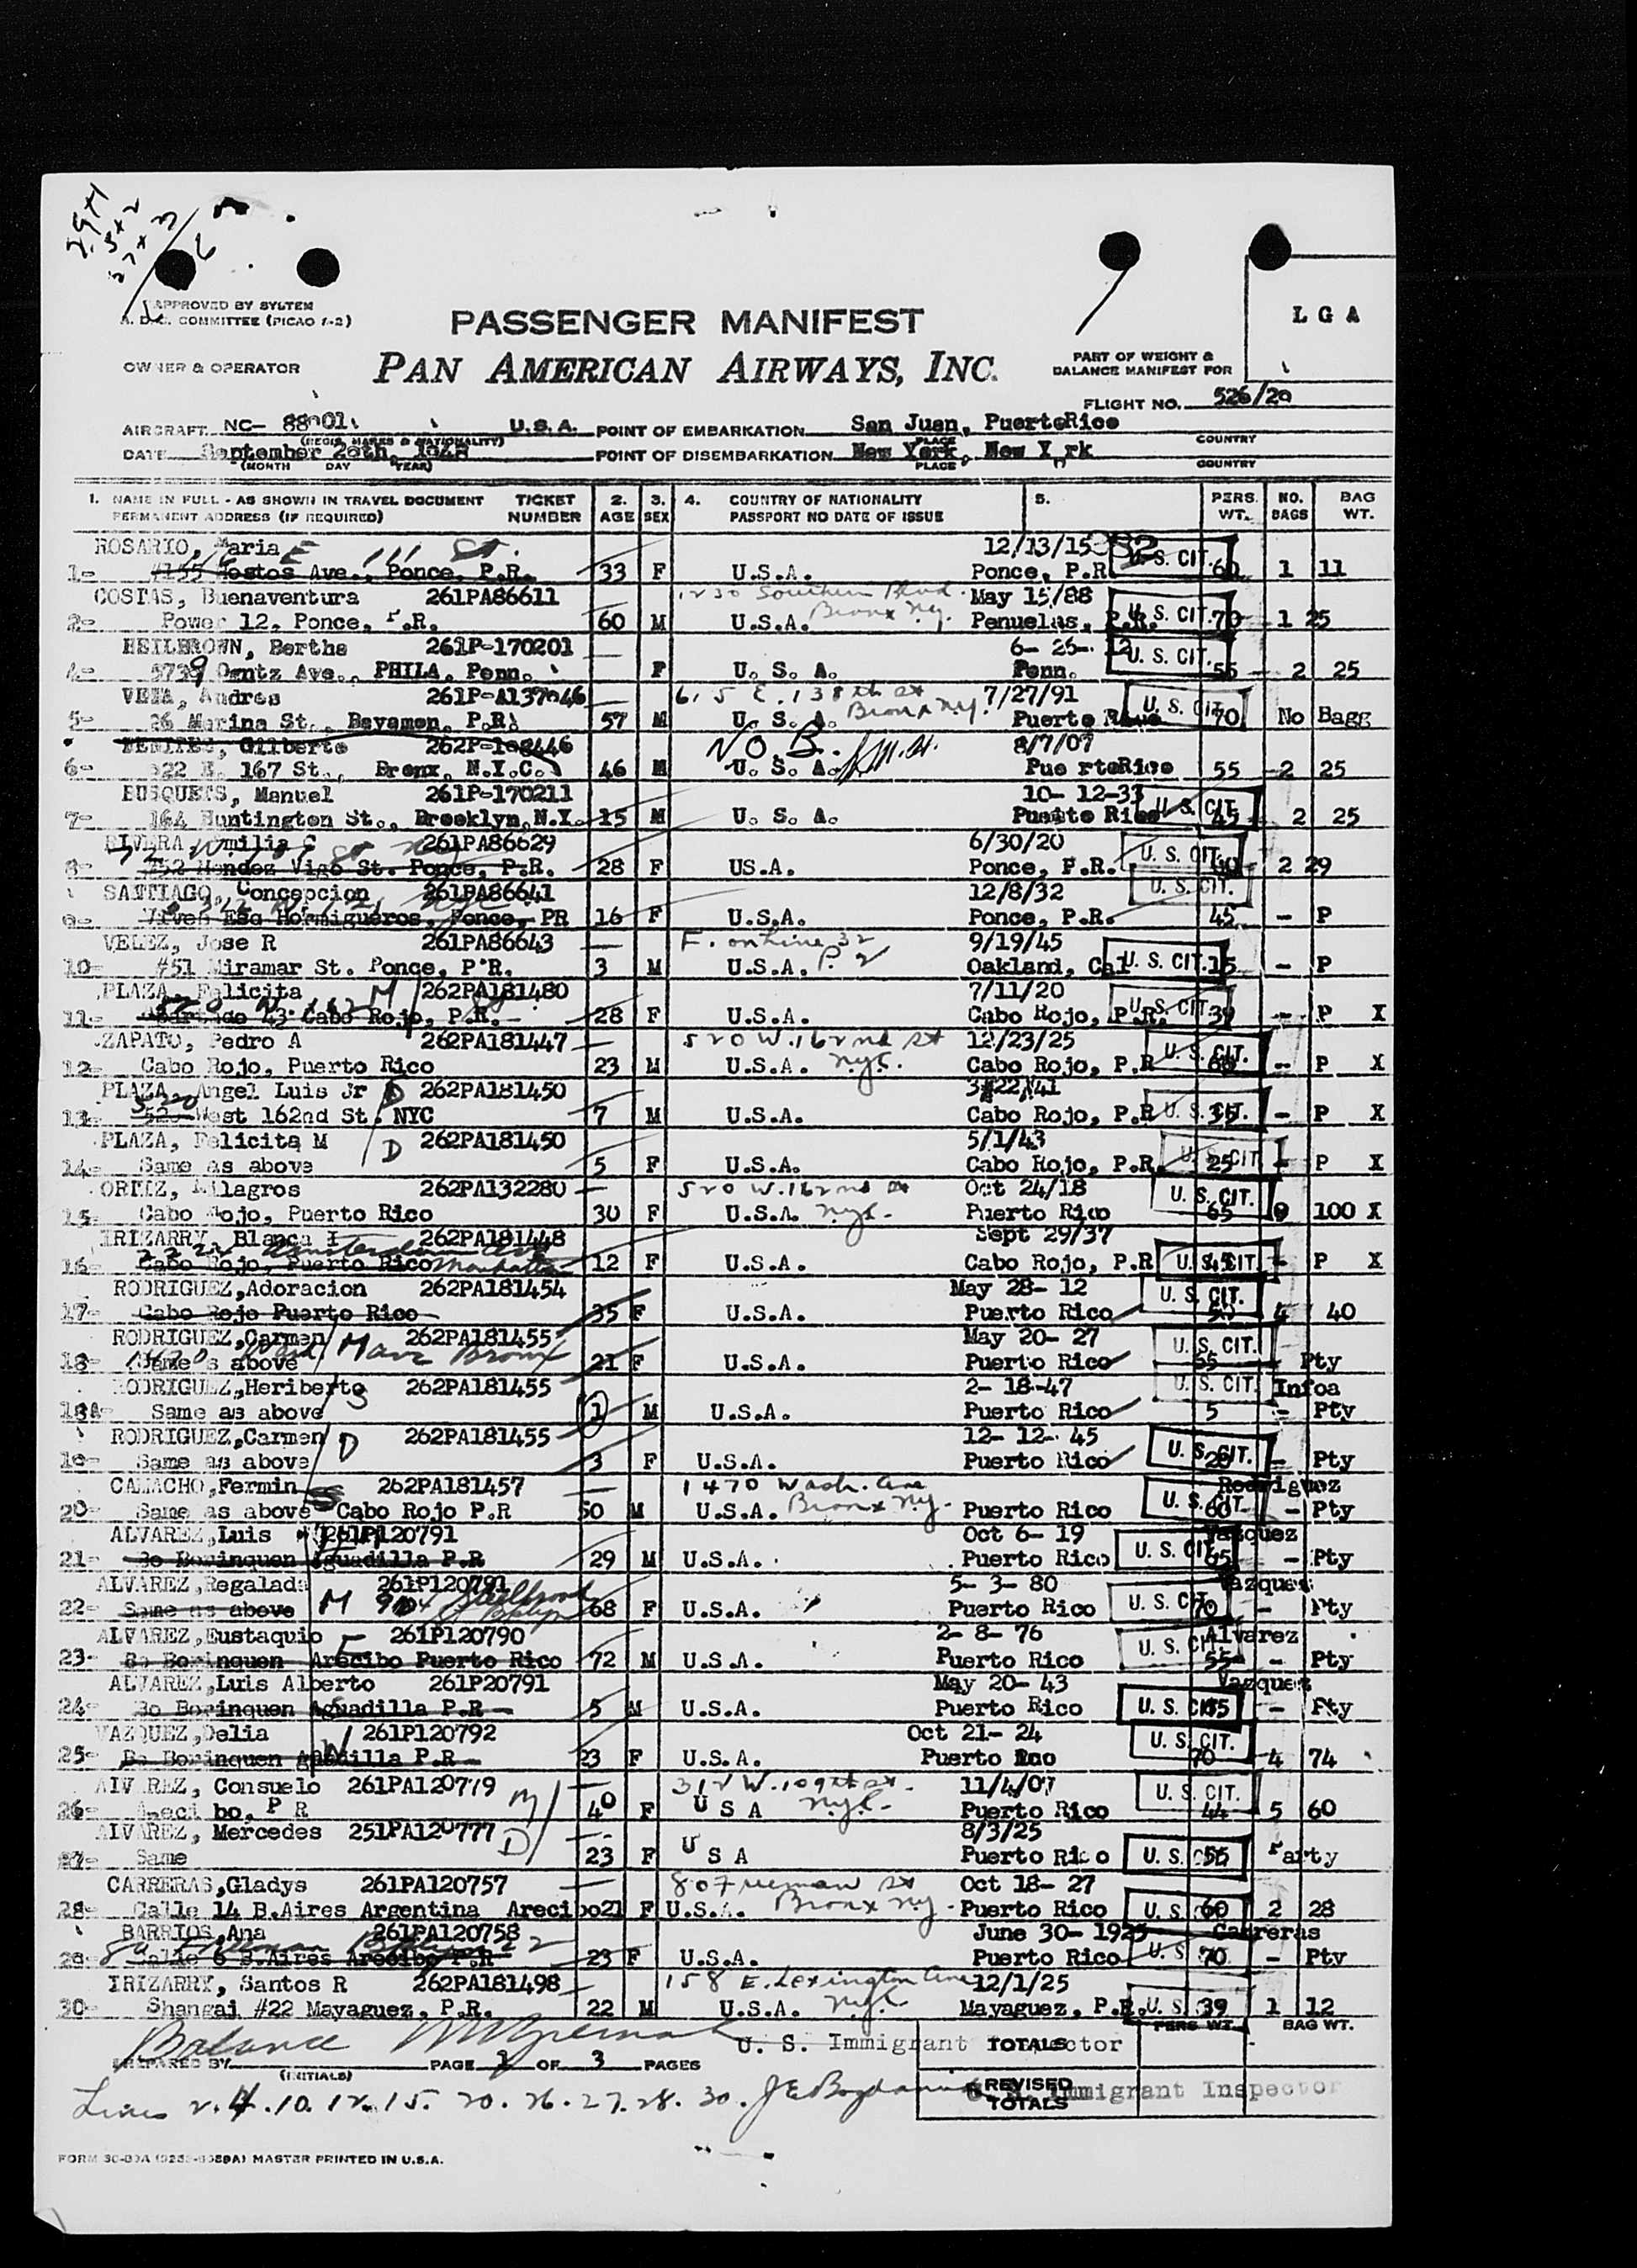 APPROVED BY SYSTEM
A. D. C. COMMITTEE (PICAO 1-2)
PASSENGER MANIFEST
L G A
OWNER & OPERATOR
PAN AMERICAN AIRWAYS, INC.
PART OF WEIGHT &
BALANCE MANIFEST FOR
FLIGHT NO. 526/20
AIRCRAFT NC- 88001 U.S.A. POINT OF EMBARKATION San Juan, PuertoRico
(REGIS. MARKS & NATIONALITY) PLACE COUNTRY
DATE September 20th, 1948 POINT OF DISEMBARKATION New York, New York
(MONTH DAY YEAR) PLACE COUNTRY
1. NAME IN FULL - AS SHOWN IN TRAVEL DOCUMENT TICKET 2. 3. 4. COUNTRY OF NATIONALITY 5. PERS. NO. BAG
PERMANENT ADDRESS (IF REQUIRED) NUMBER AGE SEX PASSPORT NO DATE OF ISSUE WT. BAGS WT.
ROSARIO, Maria 12/13/15
1- #155 Hostos Ave., Ponce, P.R. 33 F U.S.A. Ponce, P.R. U. S. CIT. 60 1 11
COSTAS, Buenaventura 261PA86611 1230 Southern Blvd. May 15/88
2- Power 12, Ponce, P.R. 60 M U.S.A. Bronx N.Y. Penuelas, P.R. U. S. CIT. 70 1 25
HEILBROWN, Bertha 261P-170201 6- 26- 12
4- Ogntz Ave., PHILA, Penn. F U. S. A. Penn. U. S. CIT. 55 2 25
VEGA, Andres 261P-A137046 615 E. 138th st 7/27/91
5- 26 Marina St., Bayamon, P.R. 57 M U. S. A. Bronx N.Y. Puerto U. S. CIT. 70 No Bagg
Gilberto N O B. 8/7/07
6- 922 E. 167 St., Bronx, N.Y.C. 46 M U. S. A. Pue rtoRico 55 2 25
BUSQUETS, Manuel 261P-170211 10- 12-33
7- 164 Huntington St., Brooklyn, N.Y. 15 M U. S. A. Puerto Rico U. S. CIT. 45 2 25
RIVERA, Emilia C 261PA86629 6/30/20
8- #52 Mendez Vigo St. Ponce, P.R. 28 F US.A. Ponce, P.R. U. S. CIT. 40 2 29
SANTIAGO, Concepcion 261PA86641 12/8/32 U. S. CIT.
9- Hormigueros, Ponce, PR 16 F U.S.A. Ponce, P.R. 45 - P
VELEZ, Jose R 261PA86643 F. on line 32 9/19/45
10- #51 Miramar St. Ponce, P.R. 3 M U.S.A. P. 2 Oakland, Cal U. S. CIT. 15 - P
PLAZA, Felicita M 262PA181480 7/11/20
11- 43 Cabo Rojo, P.R. 28 F U.S.A. Cabo Rojo, P.R. U. S. CIT. 39 - P X
ZAPATO, Pedro A 262PA181447 520 W. 162nd St 12/23/25
12- Cabo Rojo, Puerto Rico 23 M U.S.A. N.Y.C. Cabo Rojo, P.R U. S. CIT. 60 - P X
PLAZA, Angel Luis Jr D 262PA181450 3/22/41
13- 520 West 162nd St. NYC 7 M U.S.A. Cabo Rojo, P.R U. S. CIT. 35 - P X
PLAZA, Felicita M D 262PA181450 5/1/43
14- Same as above 5 F U.S.A. Cabo Rojo, P.R. U. S. CIT 25 - P X
ORTIZ, Milagros 262PA132280 520 W. 162nd St Oct 24/18
15- Cabo Rojo, Puerto Rico 30 F U.S.A. N.Y.C. Puerto Rico U. S. CIT. 65 9 100 X
IRIZARRY, Blanca I 262PA181448 Sept 29/37
Amsterdam Ave
16- Cabo Rojo, Puerto Rico Manhattan 12 F U.S.A. Cabo Rojo, P.R U. S. CIT. 45 - P X
RODRIGUEZ,Adoracion 262PA181454 May 28- 12
17- Cabo Rojo Puerto Rico 35 F U.S.A. Puerto Rico U. S. CIT. 4 40
RODRIGUEZ,Carmen 262PA181455 May 20- 27
18- Same as above Bronx 21 F U.S.A. Puerto Rico U. S. CIT. 55 - Pty
RODRIGUEZ,Heriberto S 262PA181455 2- 18-47 U. S. CIT. Infoa
18A- Same as above 1 M U.S.A. Puerto Rico 5 - Pty
RODRIGUEZ,Carmen D 262PA181455 12- 12- 45
19- Same as above 3 F U.S.A. Puerto Rico U. S. CIT. 20 - Pty
CAMACHO,Fermin 262PA181457 1470 Wash. Ave Rodriguez
20- Same as above Cabo Rojo P.R 50 M U.S.A. Bronx N.Y. Puerto Rico U. S. CIT. 60 - Pty
ALVAREZ,Luis 261P120791 Oct 6- 19 Vazquez
21- Bo Borinquen Aguadilla P.R 29 M U.S.A. Puerto Rico U. S. CIT. 65 - Pty
ALVAREZ,Regalada 261P120791 5- 3- 80 Vazquez
22- Same as above M 68 F U.S.A. Puerto Rico U. S. CIT. 70 - Pty
ALVAREZ,Eustaquio F 261P120790 2- 8- 76 Alvarez
23- Bo Borinquen Arecibo Puerto Rico 72 M U.S.A. Puerto Rico U. S. CIT. 55 - Pty
ALVAREZ,Luis Alberto 261P20791 May 20- 43 Vazquez
24- Bo Borinquen Aguadilla P.R 5 M U.S.A. Puerto Rico U. S. CIT. - Pty
VAZQUEZ,Delia W 261P120792 Oct 21- 24
25- Bo Borinquen P.R 23 F U.S.A. Puerto U. S. CIT. 70 4 74
ALVAREZ, Consuelo 261PA120779 M 312 W. 109th st. 11/4/07
26- Areci bo, P R 40 F U S A N.Y.C. Puerto Rico U. S. CIT. 44 5 60
ALVAREZ, Mercedes 251PA120777 D 8/3/25
27- Same 23 F U S A Puerto Rico U. S. CIT 56 Party
CARRERAS,Gladys 261PA120757 807 Freeman St Oct 18- 27
28- Calle 14 B.Aires Argentina Arecibo 21 F U.S.A. Bronx N.Y. Puerto Rico U. S. 60 2 28
BARRIOS,Ana 261PA120758 June 30- 1925 Carreras
29- Calle 6 B.Aires Arecibo P.R 23 F U.S.A. Puerto Rico U. S. 70 - Pty
IRIZARRY, Santos R 262PA181498 158 E. Lexington Ave 12/1/25
30- Shangai #22 Mayaguez, P.R. 22 M U.S.A. N.Y.C. Mayaguez, P.R. U. S. 39 1 12
Balance U. S. Immigrant Inspector TOTALS PERS WT. BAG WT.
PREPARED BY (INITIALS) PAGE 1 OF 3 PAGES
Lines 2. 4. 10. 12. 15. 20. 26. 27. 28. 30. REVISED TOTALS U. S. Immigrant Inspector
MASTER PRINTED IN U.S.A.